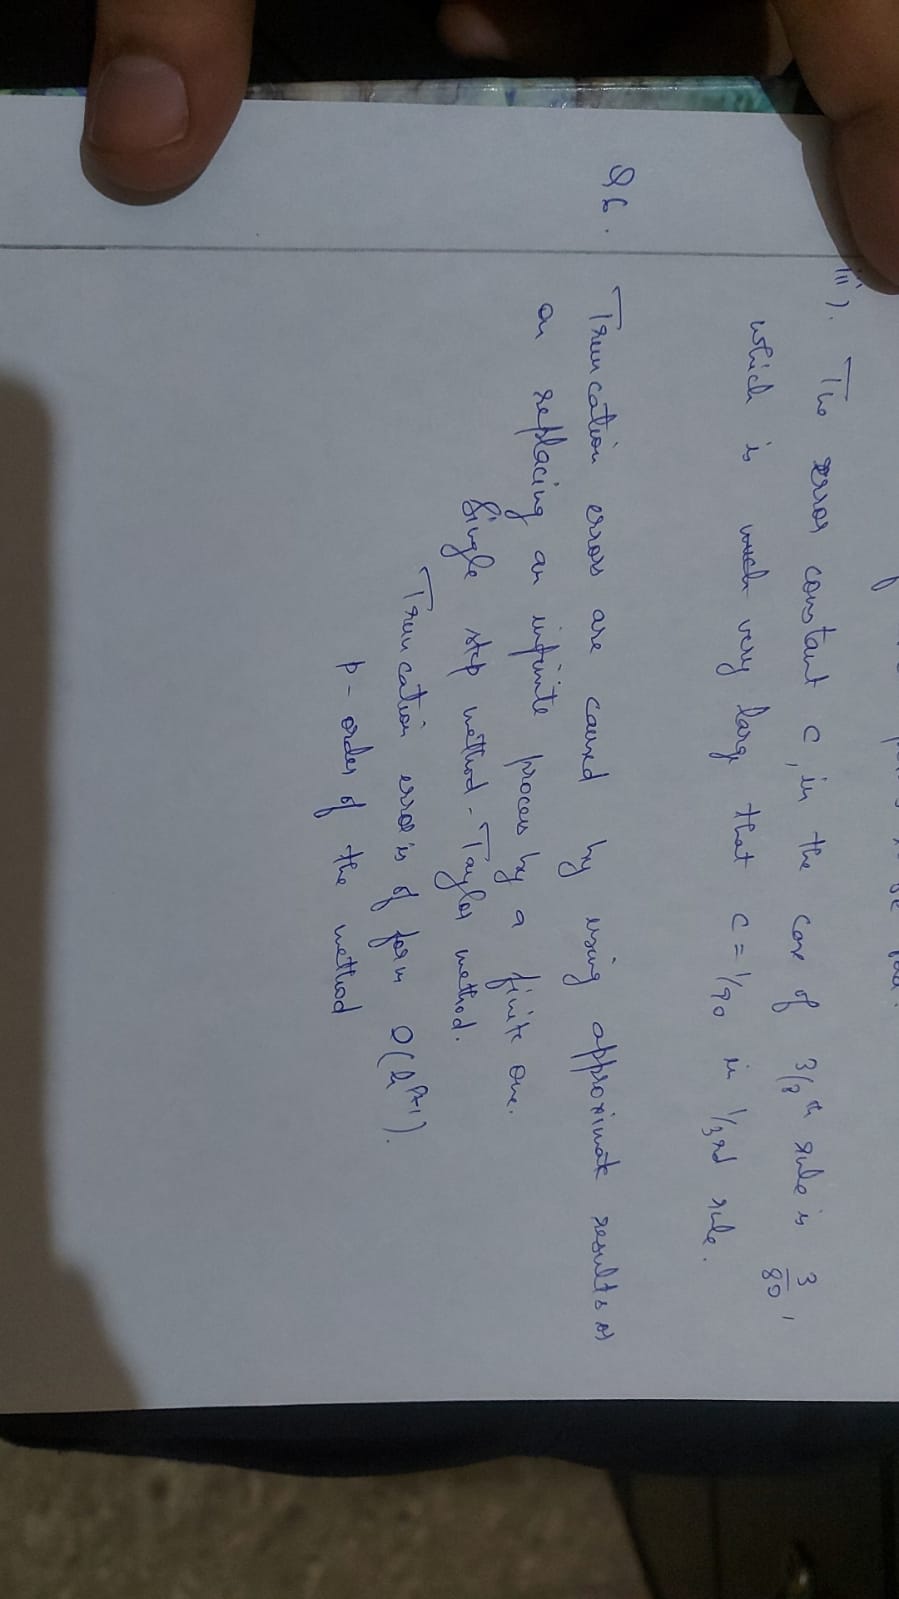 iii). The error constant c, in the case of 3/8th rule is 3/80,
which is much very large that c = 1/90 in 1/3rd rule.
Q6. Truncation errors are caused by using approximate results or
on replacing an infinite process by a finite one.
Single step method - Taylor method.
Truncation error is of form O(h^p+1).
p - order of the method